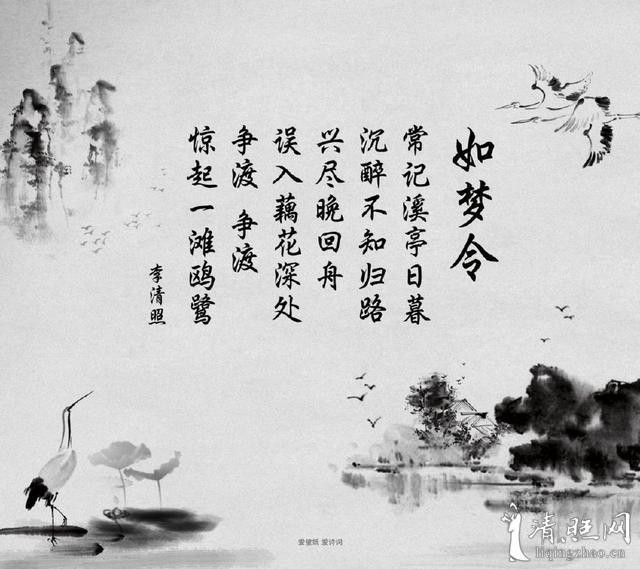 如梦令
常记溪亭日暮
沉醉不知归路
兴尽晚回舟
误入藕花深处
争渡 争渡
惊起一滩鸥鹭
李清照
爱壁纸 爱诗词
清照网
liqingzhao.cn